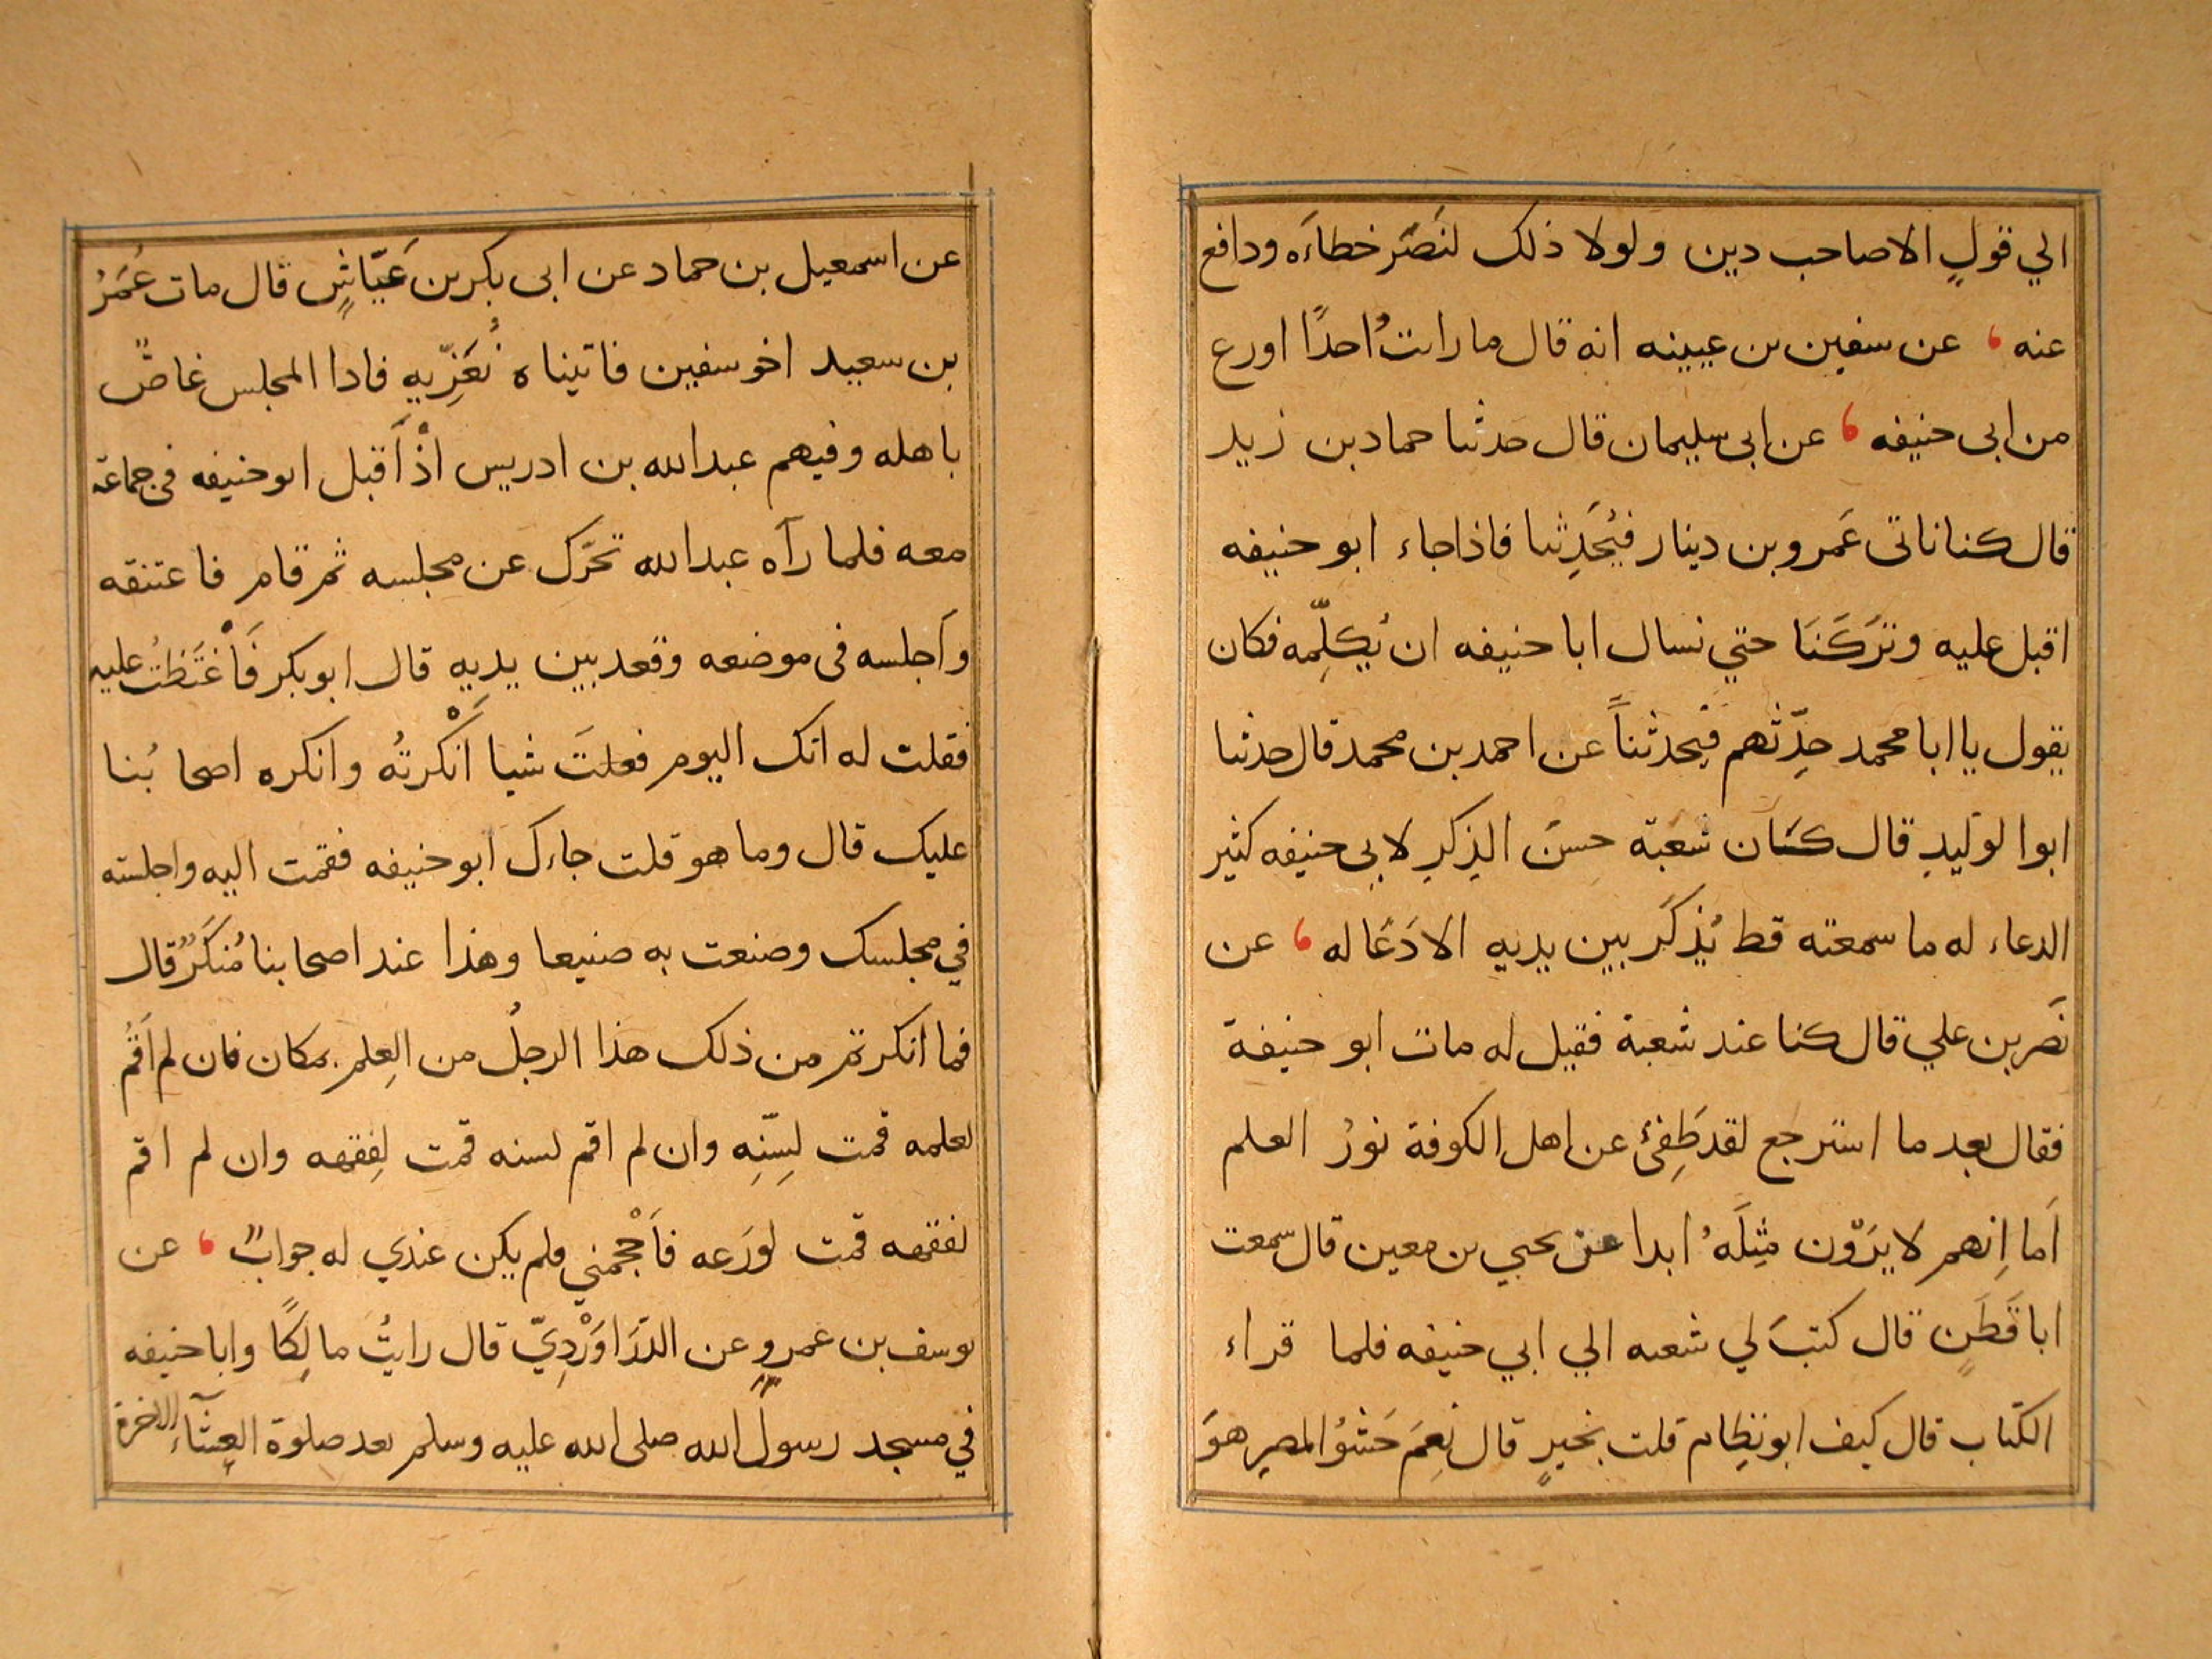 الي قولٍ الا صاحب دين ولولا ذلك لنَصَر خطاءَه ودافع
عنه ، عن سفين بن عيينه انه قال ما رايتُ احدًا اورع
من ابى حنيفه ، عن ابى سليمان قال حدثنا حماد بن زيد
قال كنا ناتى عَمرو بن دينار فيُحَدِثنا فاذا جاء ابو حنيفه
اقبل عليه وتَرَكَنَا حتي نسال ابا حنيفه ان يُكلِّمه فكان
يقول يا ابا محمد حدِّثهم فيحدثنا عن احمد بن محمد قال حدثنا
ابوا لوليدِ قال كَان شعبة حسَن الذِكرِ لابى حنيفه كثير
الدعاء له ما سمعته قط يُذكَر بين يديه الا دَعَا له ، عن
نَصر بن علي قال كنا عند شعبة فقيل له مات ابو حنيفة
فقال بعد ما استرجع لقد طَفِئ عن اهل الكوفة نورُ العلم
اَما اِنهم لا يرَوْن مثِلَهُ ابدا عن يحيي بن معين قال سمعت
ابا قَطَنٍ قال كتبَ لي شعبه الي ابي حنيفه فلما قراء
الكتاب قال كيف ابو نظام قلت بخيرٍ قال نِعمَ حَشوُ المصرِ هوَ
عن اسمعيل بن حماد عن ابى بكر بن عَيّاشٍ قال مات عُمَرُ
بن سعيد اخو سفين فاتيناه نُعَزِّيه فاذا المجلس غاصٌّ
باهله وفيهم عبد الله بن ادريس اذْ اَقبل ابو حنيفه فى جماعة
معه فلما رآه عبد الله تحَرّك عن مجلسه ثم قام فاعتنقه
واَجلسه فى موضعه وقعد بين يديه قال ابو بكر فَاغْتَظتُ عليه
فقلت له انك اليوم فعلتَ شيا اَنْكرتُه وانكره اصحابُنا
عليك قال وما هو قلت جاءك ابو حنيفه فقمت اليه واجلسته
في مجلسك وصنعت به صنيعا وهذا عند اصحابنا مُنكَرٌ قال
فما انكرتم من ذلك هذا الرجلُ من العِلم بمكان فان لم اَقُم
لعلمه قمت لِسِنّهِ وان لم اقم لسنه قمت لِفقهه وان لم اقم
لفقهه قمت لورَعه فاَحْجمني فلم يكن عندي له جوابٌ ، عن
يوسف بن عمروٍ عن الدّرَاوَرْدِيّ قال رايتُ مالِكًا وابا حنيفه
في مسجد رسول الله صلى الله عليه وسلم بعد صلوة العِشآءِ الاخرة